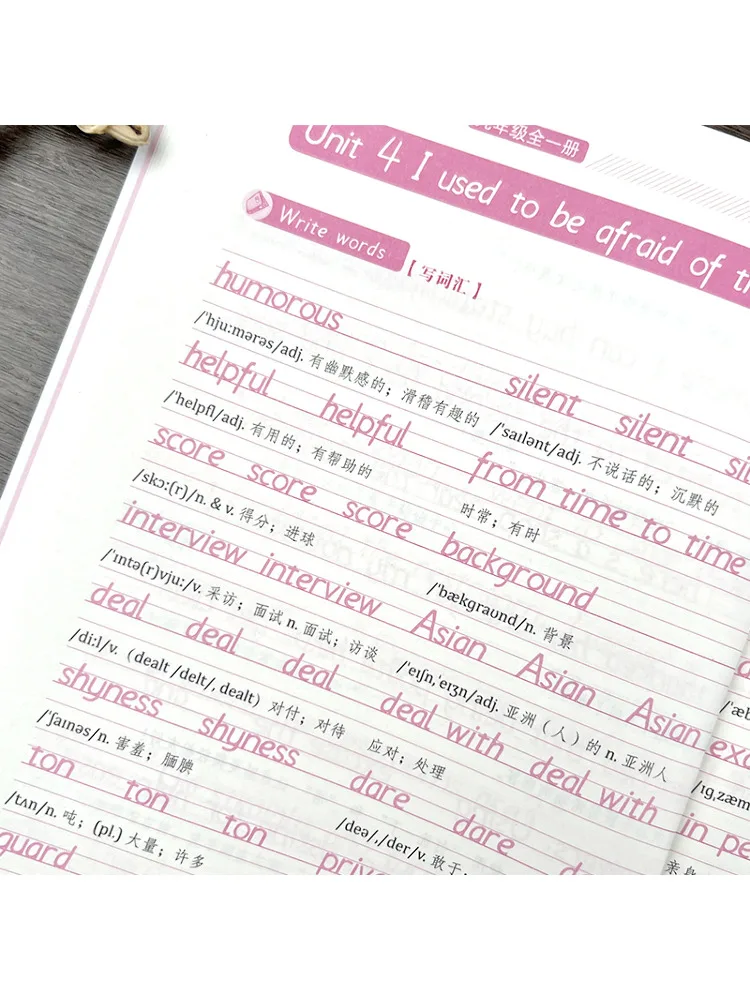 九年级全一册
Unit 4 I used to be afraid of
Write words 【写词汇】
humorous silent silent
/ˈhju:mərəs/adj. 有幽默感的；滑稽有趣的 /ˈsaɪlənt/adj. 不说话的；沉默的
helpful helpful from time to time
/ˈhelpfl/adj. 有用的；有帮助的 时常；有时
score score score background
/skɔ:(r)/n. & v. 得分；进球 /ˈbækgraʊnd/n. 背景
interview interview Asian Asian Asian
/ˈɪntə(r)vju:/v. 采访；面试 n. 面试；访谈 /ˈeɪʃn,ˈeɪʒn/adj. 亚洲（人）的 n. 亚洲人
deal deal deal deal with deal with
/di:l/v.（dealt /delt/, dealt）对付；对待 应对；处理
shyness shyness dare dare
/ˈʃaɪnəs/n. 害羞；腼腆 /deə/,/der/v. 敢于，
ton ton ton in
/tʌn/n. 吨；(pl.) 大量；许多
guard